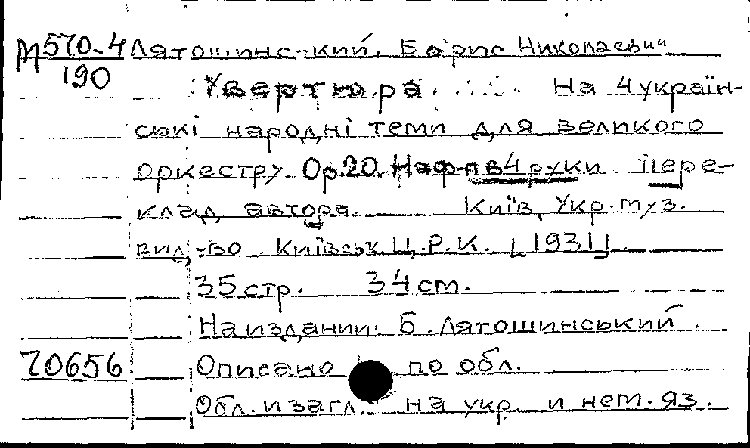 М 570-4 Лятошинский, Борис Николаевич
190 Увертюра. На 4 україн-
ські народні теми для великого
оркестру. Ор. 20. Наф-п в 4 руки Пере-
клад автора. Київ, Укр. муз.
вид-во Київськ Ц.Р.К. [1931]
35 стр. 34 ст.
На издании: Б. Лятошинський.
70656 Описано по обл.
Обл. и загл. на укр. и нем. яз.